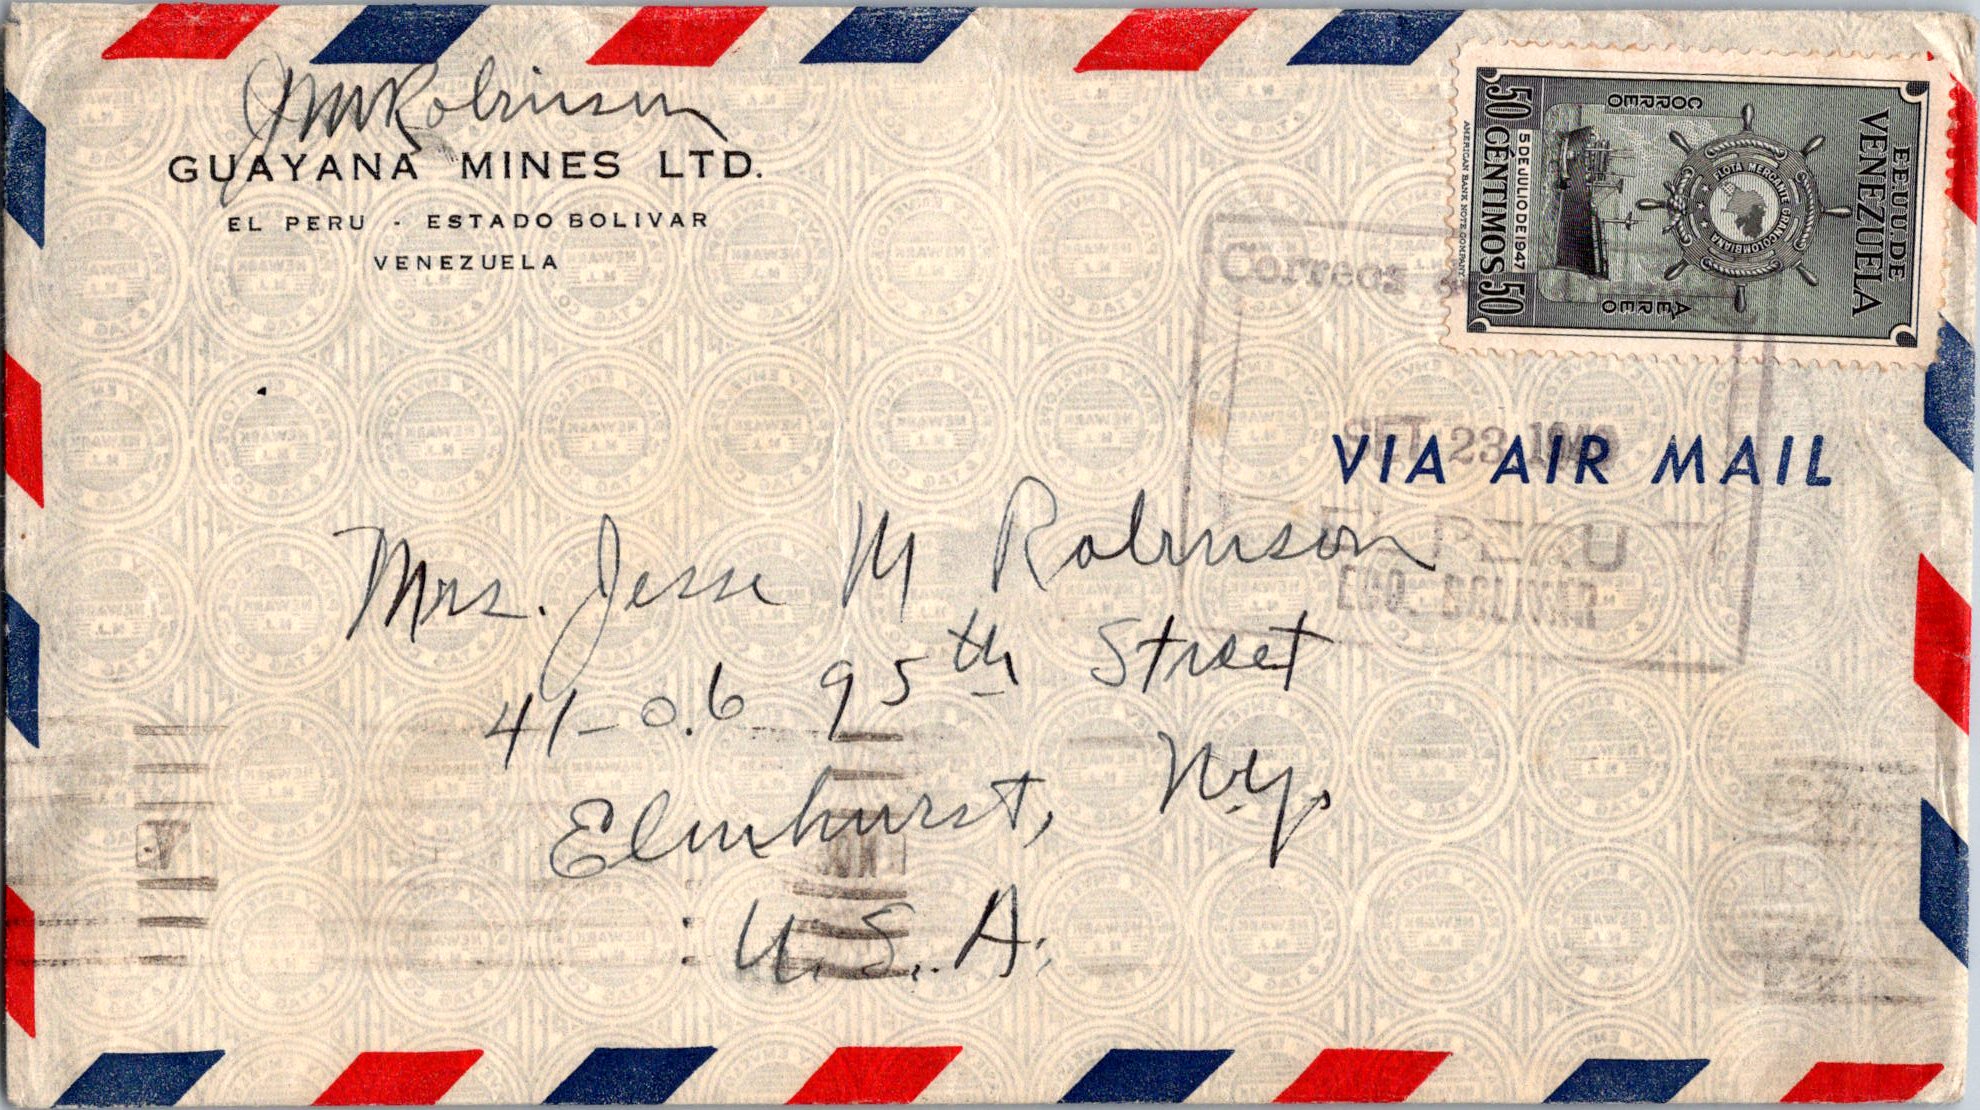 JMRobinson
GUAYANA MINES LTD.
EL PERU - ESTADO BOLIVAR
VENEZUELA
EE.UU. DE
VENEZUELA
CORREO
AÉREO
FLOTA MERCANTE GRANCOLOMBIANA
5 DE JULIO DE 1947
50 CÉNTIMOS 50
AMERICAN BANK NOTE COMPANY
Correos
SET 23
VIA AIR MAIL
EL PERU
EDO. BOLIVAR
Mrs. Jesse M Robinson
41-06 95th Street
Elmhurst, N.Y.
U.S.A.